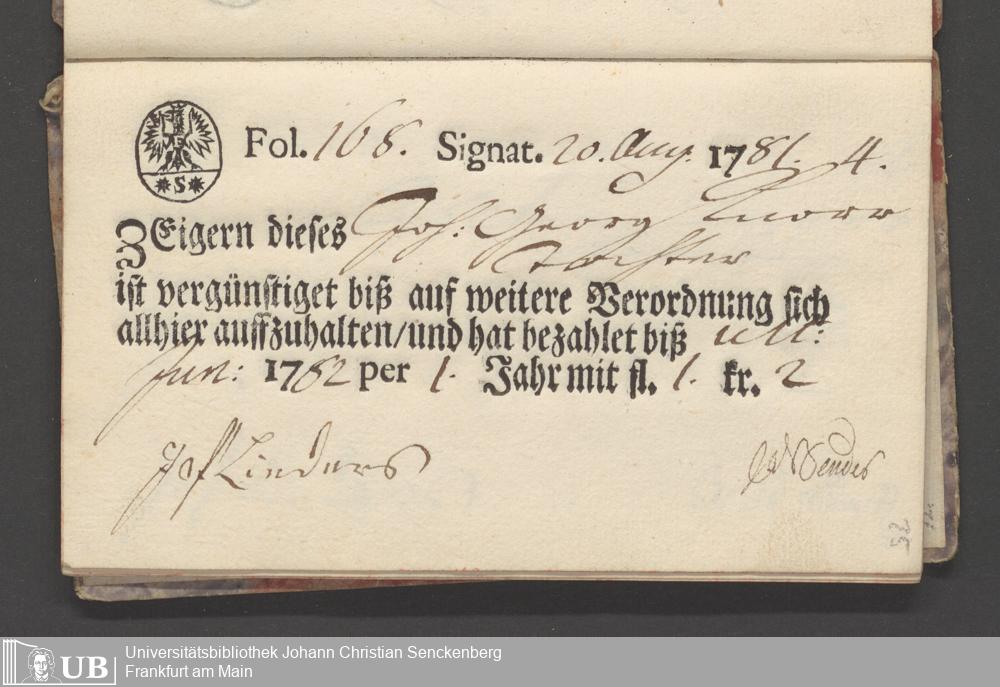 S
Fol. 168. Signat. 20. Aug. 1781. 4.
ZEigern dieses Joh: Georg Knorr
Tochter
ist vergünstiget biß auf weitere Verordnung sich
allhier auffzuhalten/und hat bezahlet biß ult:
Jun: 1782 per 1. Jahr mit fl. 1. kr. 2
32
UB Universitätsbibliothek Johann Christian Senckenberg
Frankfurt am Main